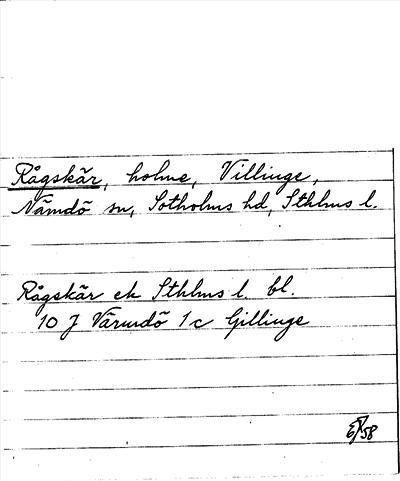 Rågskär, holme, Villinge,
Nämdö sn, Sotholms hd, Sthlms l.
Rågskär ek Sthlms l. bl.
10 J Värmdö 1c Gillinge
58